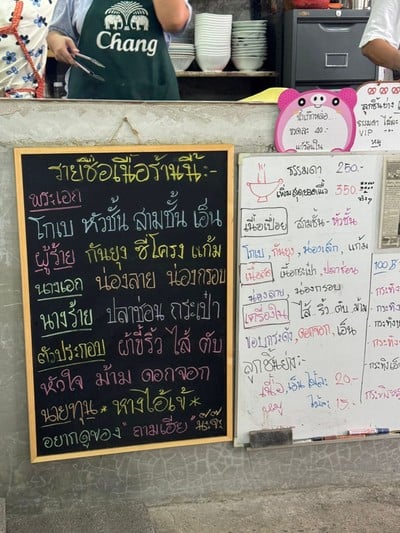 Chang
รายชื่อเนื้อร้านนี้:-
พระเอก
โกเบ หัวชั้น สามชั้น เอ็น
ผู้ร้าย กันยุง ซี่โครง แก้ม
นางเอก น่องลาย น่องกรอบ
นางร้าย ปลาช่อน กระเป๋า
ตัวประกอบ ผ้าขี้ริ้ว ไส้ ตับ
หัวใจ ม้าม ดอกจอก
นายทุน * หางไอ้เข้ *
อยากดูของ "ถามเฮีย" น๊ะจ๊ะ
ธรรมดา 250.-
เพิ่ม 350.
เนื้อเปื่อย สามชั้น - หัวชั้น
โกเบ, กันยุง, น่องเล็ก, แก้ม
เนื้อสด เนื้อกระเป๋า ปลาช่อน
น่องลาย น่องกรอบ
เครื่องใน ไส้, ริ้ว, ตับ, ม้าม
ขอบกระด้ง, ดอกจอก, เอ็น
ลูกชิ้นย่าง:
เนื้อ, เอ็น ไม้ละ 20.-
หมู ไม้ละ 15.-
ลูกชิ้นย่าง
ธรรมดา ไม้ละ
VIP
100 B